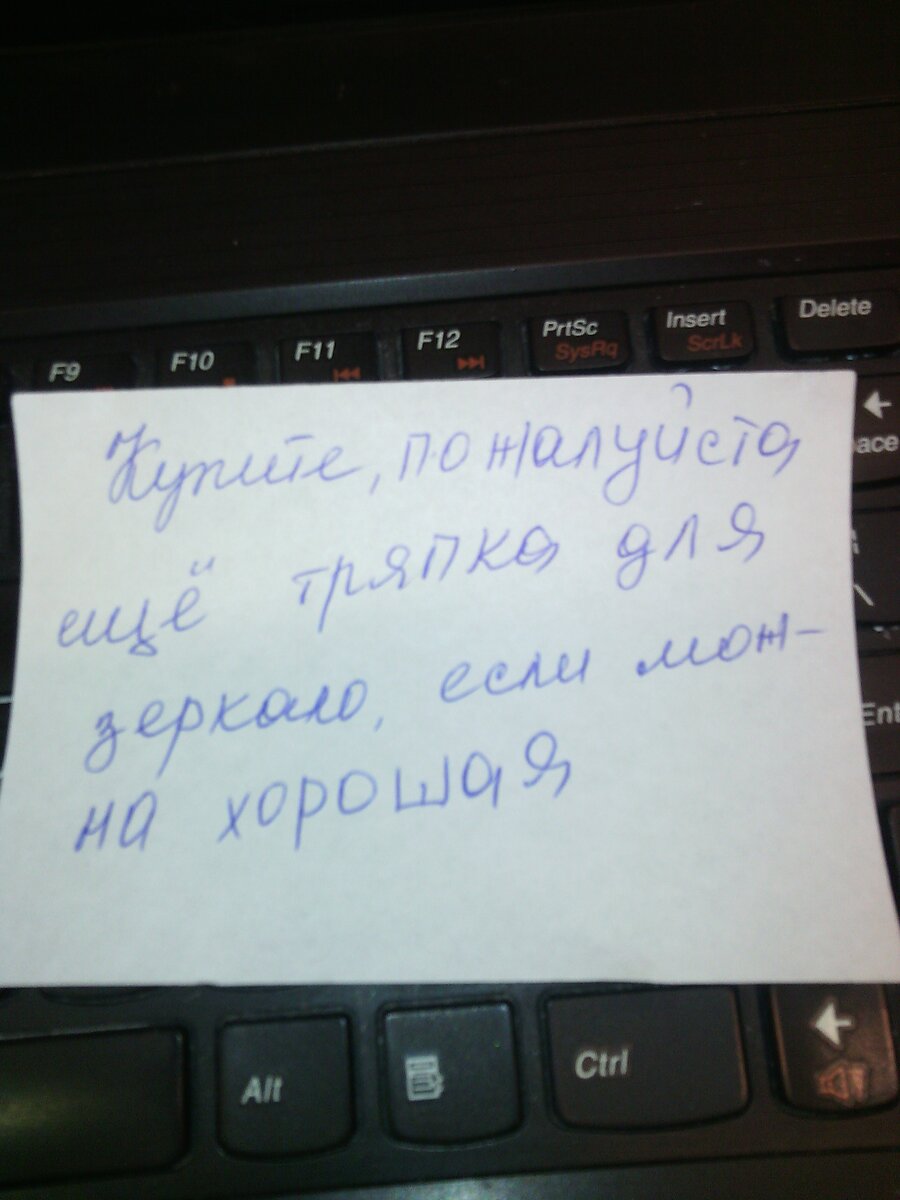 F9 F10 F11 F12 PrtSc Insert Delete
SysRq ScrLk
ace
Купите, пожалуйста
ещё тряпка для
зеркало, если мож-
на хорошая
Ent
Alt Ctrl